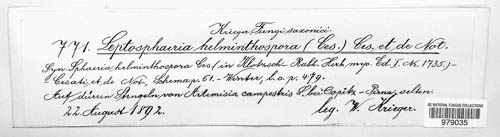 Krieger Fungi saxonici.
771. Leptosphaeria helminthospora (Ces.) Ces. et de Not.
Syn. Sphaeria helminthospora Ces. in Klotzsch-Rabh. Herb. myc. Ed. I. No. 1735.) -
Cesati et de Not., Schema p. 61. - Winter, l. c. p. 479.
Auf dürren Stengeln von Artemisia campestris L. bei Copitz - Pirna, selten.
22. August 1892. leg. W. Krieger.
US NATIONAL FUNGUS COLLECTIONS
979035